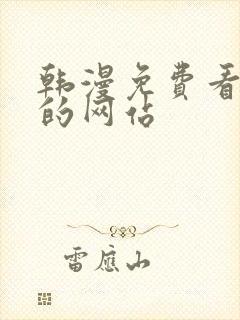 韩漫免费看
的网站
雷应山